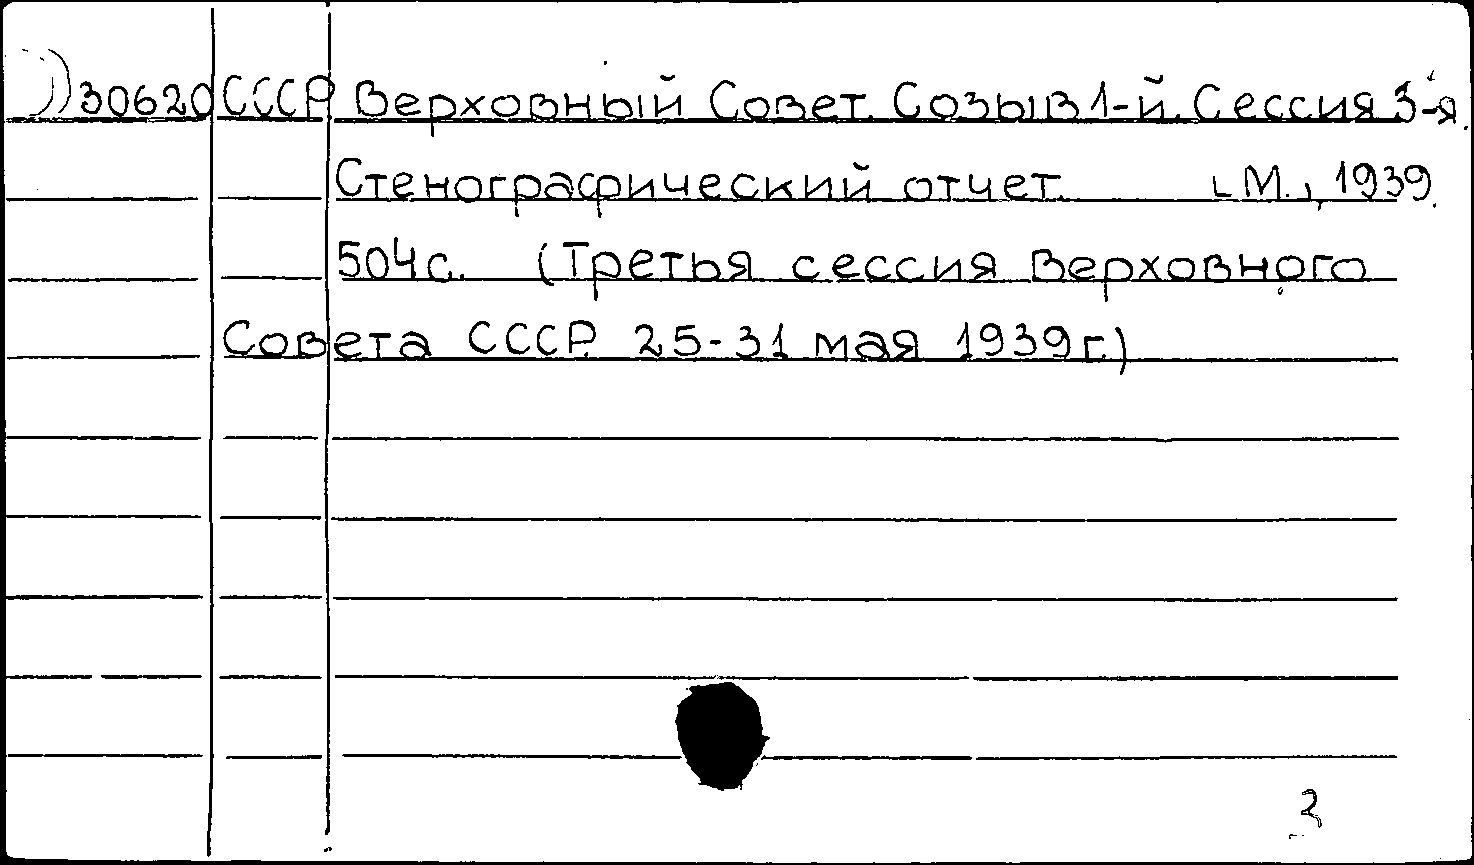 30620 СССР Верховный Совет. Созыв 1-й. Сессия 3-я.
Стенографический отчет. [М.], 1939.
504с. (Третья сессия Верховного
Совета СССР. 25-31 мая 1939г.)